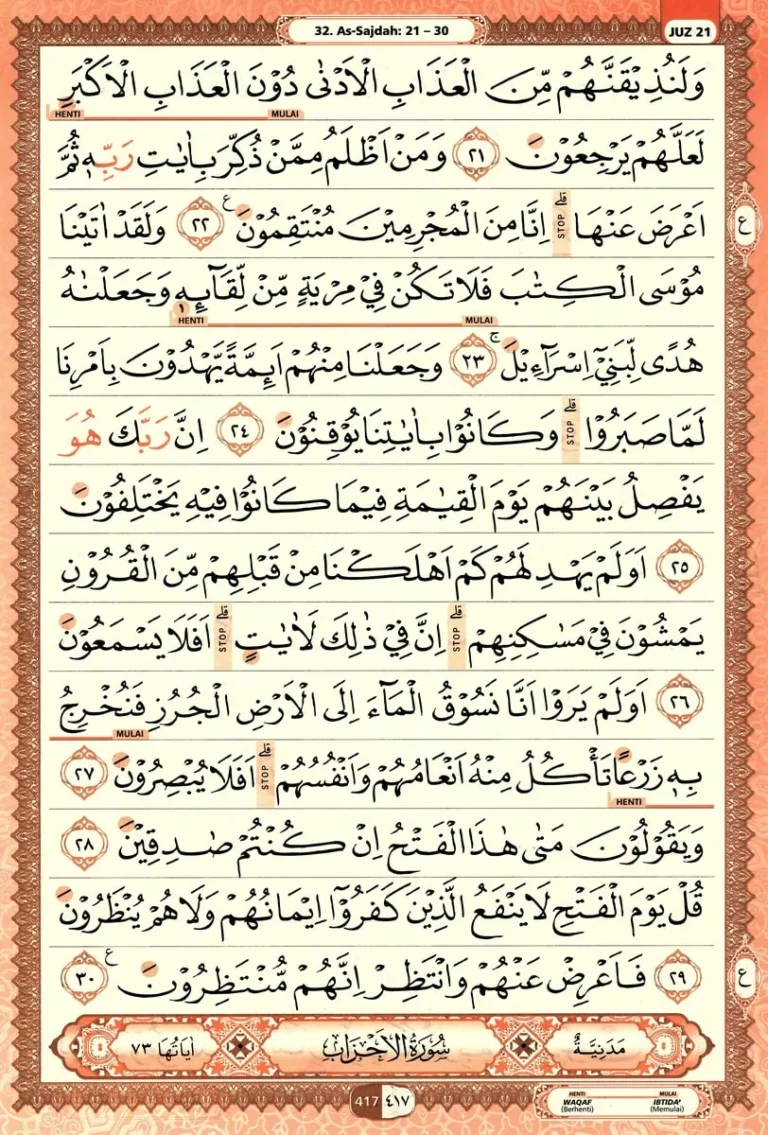 32. As-Sajdah: 21 – 30
JUZ 21
وَلَنُذِيْقَنَّهُمْ مِّنَ الْعَذَابِ الْاَدْنٰى دُوْنَ الْعَذَابِ الْاَكْبَرِ
HENTI MULAI
لَعَلَّهُمْ يَرْجِعُوْنَ ٢١ وَمَنْ اَظْلَمُ مِمَّنْ ذُكِّرَ بِاٰيٰتِ رَبِّهٖ ثُمَّ
اَعْرَضَ عَنْهَا ۗ STOP اِنَّا مِنَ الْمُجْرِمِيْنَ مُنْتَقِمُوْنَ ࣖ ٢٢ وَلَقَدْ اٰتَيْنَا
ع
مُوْسَى الْكِتٰبَ فَلَا تَكُنْ فِيْ مِرْيَةٍ مِّنْ لِّقَاۤىِٕهٖ وَجَعَلْنٰهُ
HENTI MULAI
هُدًى لِّبَنِيْٓ اِسْرَاۤءِيْلَ ۚ ٢٣ وَجَعَلْنَا مِنْهُمْ اَىِٕمَّةً يَّهْدُوْنَ بِاَمْرِنَا
لَمَّا صَبَرُوْا ۗ STOP وَكَانُوْا بِاٰيٰتِنَا يُوْقِنُوْنَ ٢٤ اِنَّ رَبَّكَ هُوَ
يَفْصِلُ بَيْنَهُمْ يَوْمَ الْقِيٰمَةِ فِيْمَا كَانُوْا فِيْهِ يَخْتَلِفُوْنَ
٢٥ اَوَلَمْ يَهْدِ لَهُمْ كَمْ اَهْلَكْنَا مِنْ قَبْلِهِمْ مِّنَ الْقُرُوْنِ
يَمْشُوْنَ فِيْ مَسٰكِنِهِمْ ۗ STOP اِنَّ فِيْ ذٰلِكَ لَاٰيٰتٍ ۗ STOP اَفَلَا يَسْمَعُوْنَ
٢٦ اَوَلَمْ يَرَوْا اَنَّا نَسُوْقُ الْمَاۤءَ اِلَى الْاَرْضِ الْجُرُزِ فَنُخْرِجُ
MULAI
بِهٖ زَرْعًا تَأْكُلُ مِنْهُ اَنْعَامُهُمْ وَاَنْفُسُهُمْ ۗ STOP اَفَلَا يُبْصِرُوْنَ ٢٧
HENTI
وَيَقُوْلُوْنَ مَتٰى هٰذَا الْفَتْحُ اِنْ كُنْتُمْ صٰدِقِيْنَ ٢٨
قُلْ يَوْمَ الْفَتْحِ لَا يَنْفَعُ الَّذِيْنَ كَفَرُوْٓا اِيْمَانُهُمْ وَلَا هُمْ يُنْظَرُوْنَ
٢٩ فَاَعْرِضْ عَنْهُمْ وَانْتَظِرْ اِنَّهُمْ مُّنْتَظِرُوْنَ ࣖ ٣٠
ع
مَدَنِيَّةٌ سُوْرَةُ الْاَحْزَابِ اٰيَاتُهَا ٧٣
417 ٤١٧
HENTI MULAI
WAQAF IBTIDA'
(Berhenti) (Memulai)